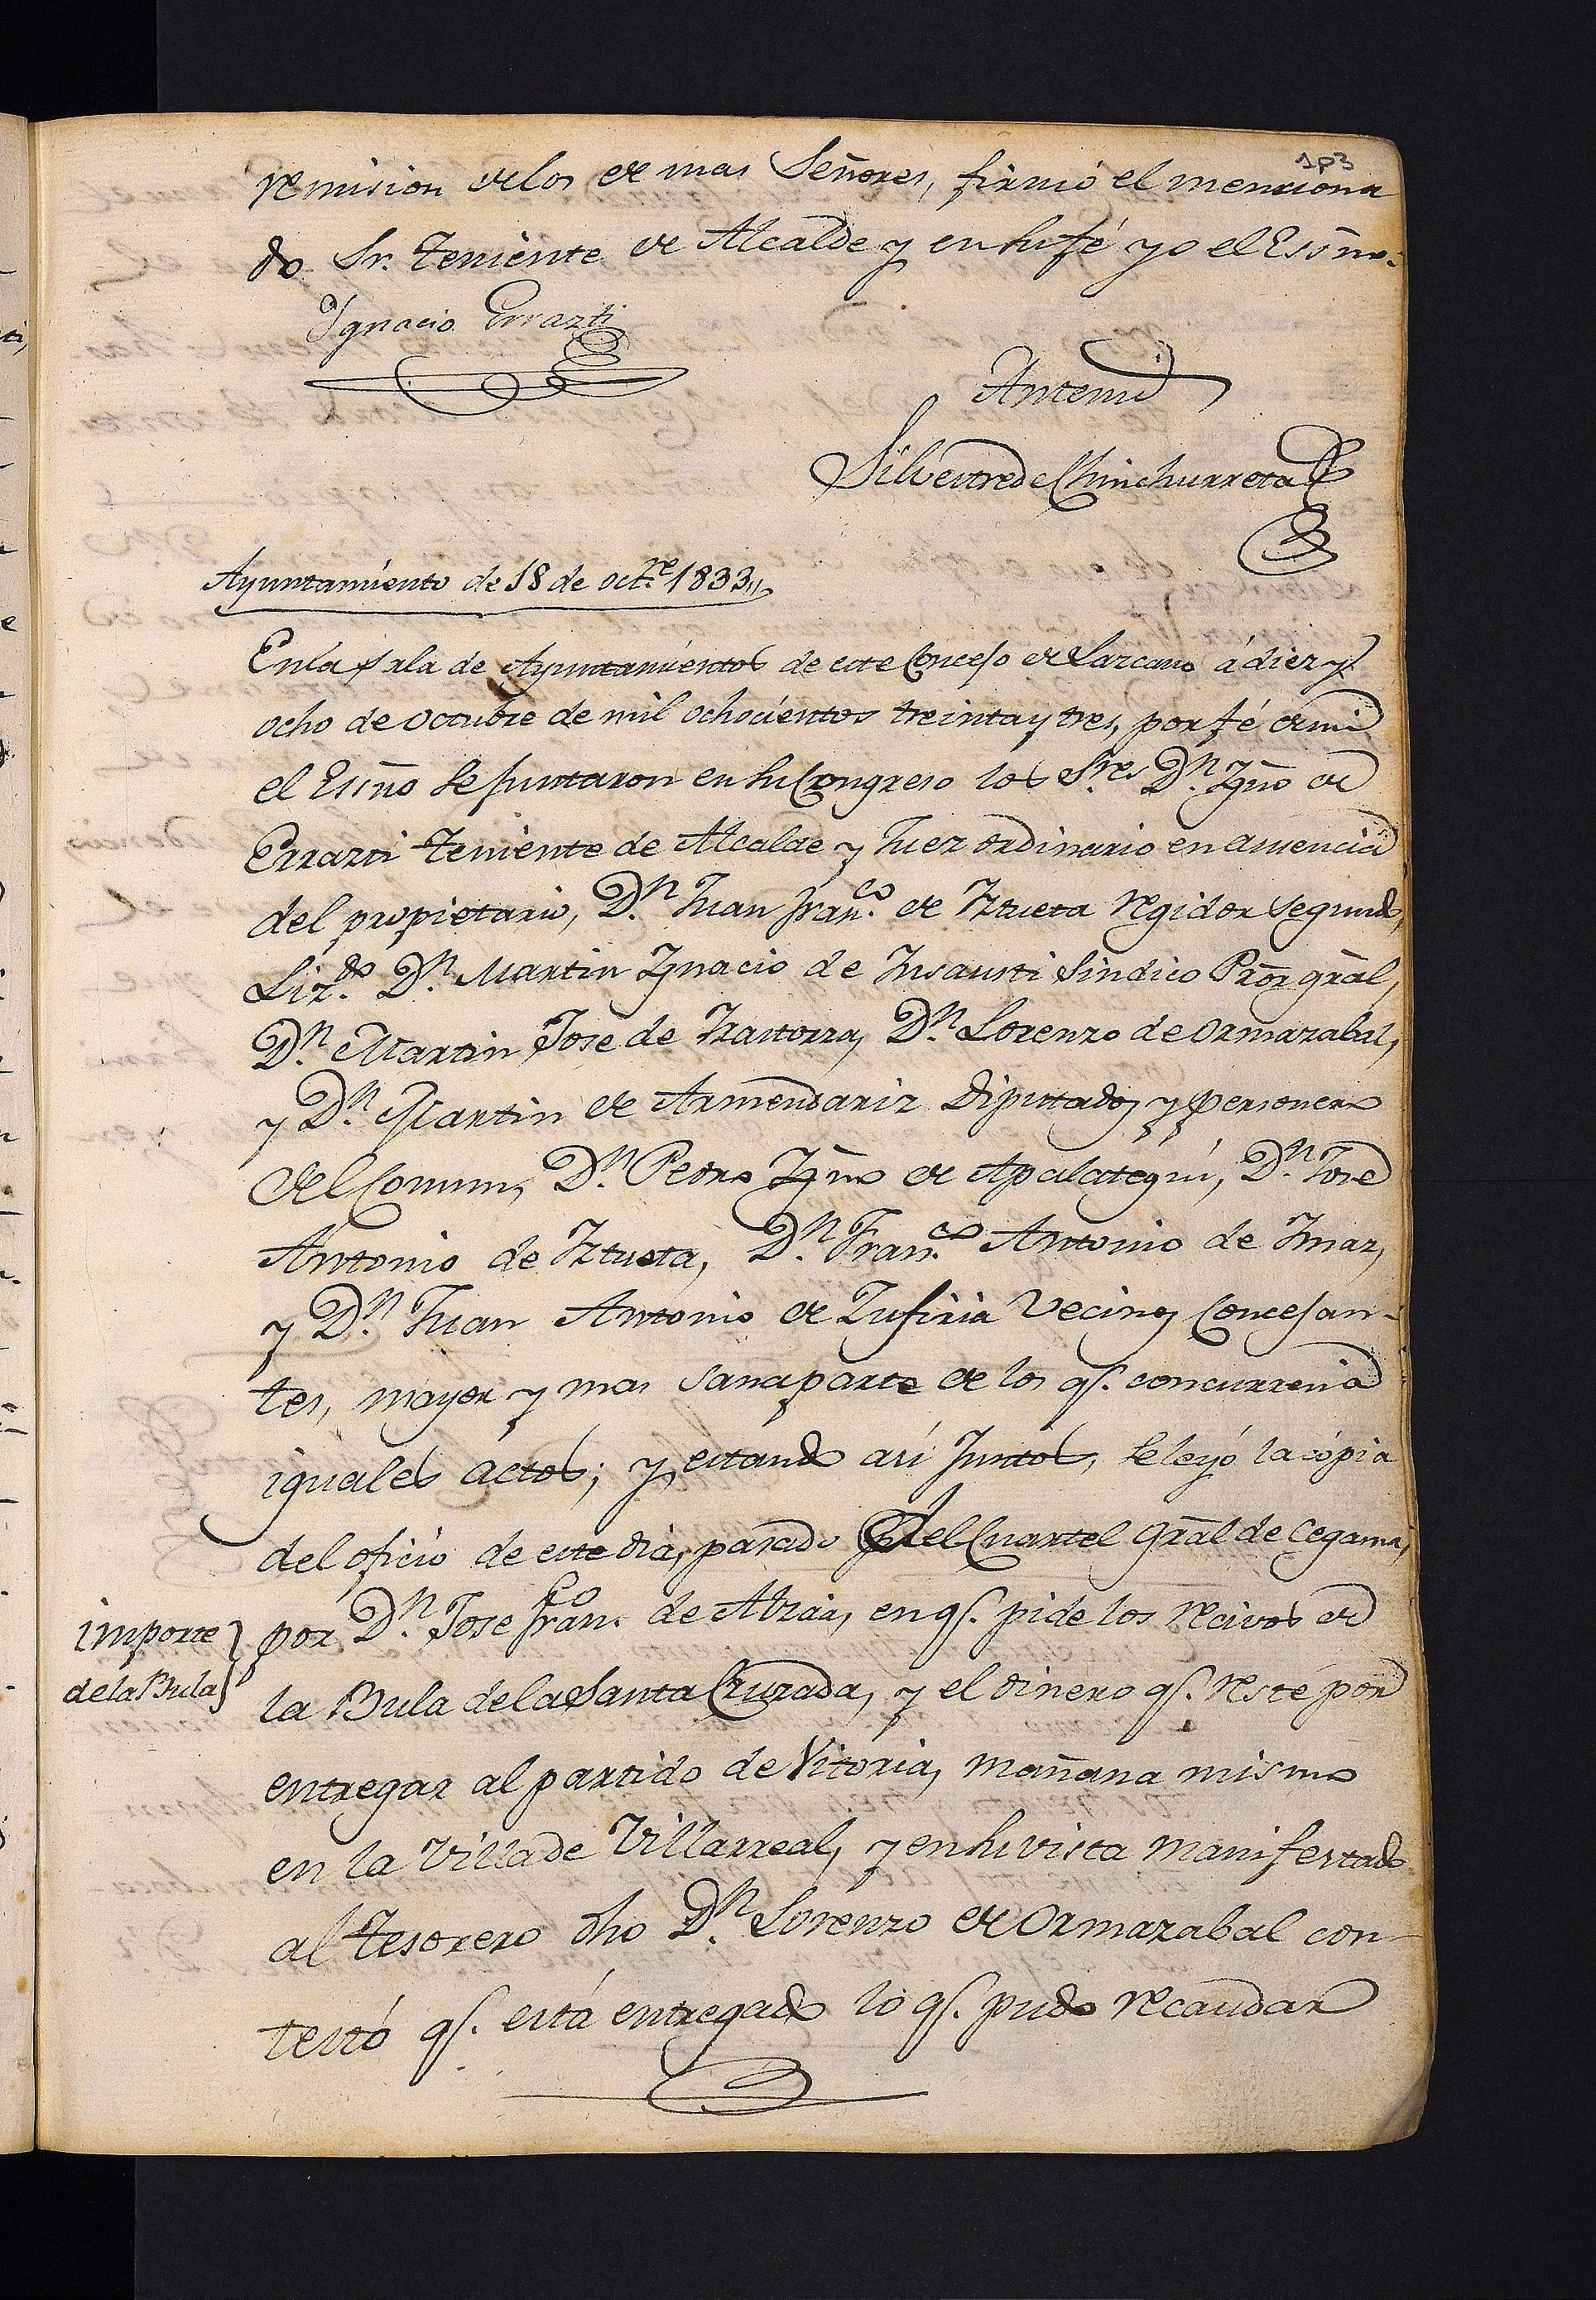 193
remision delos de mas Señores, firmó el menciona
do Sr. Teniente de Alcalde y en su fé yo el Essño.
Ygnacio Errazti
Antemi
Silvestre de Chinchurreta
Ayuntamiento de 18 de octre. 1833,,
En la sala de Ayuntamientos de este Concejo de Lazcano á diez y
ocho de Octubre de mil ochocientos treinta y tres, por fé de mi
el Essño se juntaron en su Congreso los Sres. Dn. Ygño de
Errazti Teniente de Alcalde y Juez ordinario en ausencia
del propietario, Dn. Juan Franco. de Yztueta regidor segundo,
Lizdo. Dn. Martin Ygnacio de Insausti Sindico Pror gral,
Dn. Martin Jose de Irastorza, Dn. Lorenzo de Ormazabal,
y Dn. Martin de Armendariz Diputados y personero
del Comun, Dn. Pedro Ygño de Apalategui, Dn. Jose
Antonio de Yztueta, Dn. Franco. Antonio de Imaz,
y Dn. Juan Antonio de Zufiria Vecinos Concejan-
tes, mayor y mas sana parte de los qs. concurren á
iguales actos; y estando asi Juntos, se leyó la cópia
del oficio de este dia, pasado del Cuartel gral de Cegama,
por Dn. Jose Franco. de Alzaa, en qs. pide los recivos de
la Bula de la Santa Cruzada, y el dinero qs. resté por
entregar al partido de Vitoria, mañana mismo
en la Villa de Villarreal, y en su vista manifestado
al Tesorero dho Dn. Lorenzo de Ormazabal con-
testó qs. está entregado lo qs. pudo recaudar
importe
de la Bula